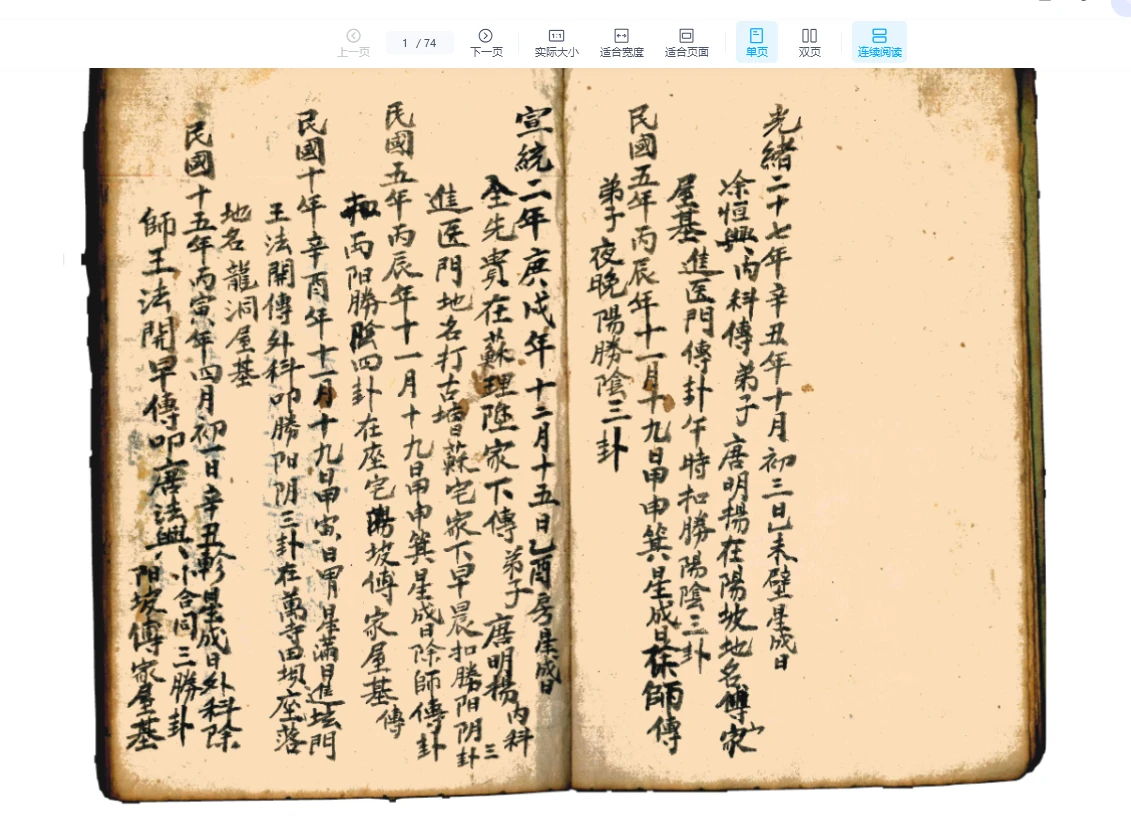 上一页
1 / 74
下一页
实际大小
适合宽度
适合页面
单页
双页
连续阅读
光緒二十七年辛丑年十月初三日乙未壁星成日
涂恒興、内科傳弟子唐明楊在陽坡地名傅家
屋基進医門傳卦午時扣勝陽陰三卦
民國五年丙辰年十一月十九日甲申箕星成日除師傳
弟子夜晚陽勝陰三卦
宣統二年庚戌年十二月十五日乙酉房星成日
全先貴在蘇理陞家下傳弟子唐明楊内科
進医門地名打古增蘇宅家下早晨扣勝阳阴三卦
民國五年丙辰年十一月十九日甲申箕星成日除師傳卦
丙阳勝陰四卦在座宅陽坡傅家屋基傳
民國十年辛酉年十二月十九日甲寅日胃星滿日進坛門
王法開傳外科叩勝阳阴三卦在萬寺田坝座落
地名龍洞屋基
民國十五年丙寅年四月初一日辛丑軫星成日外科除
師王法開早傳叩唐法興、卜合同三勝卦
阳坡傅家屋基